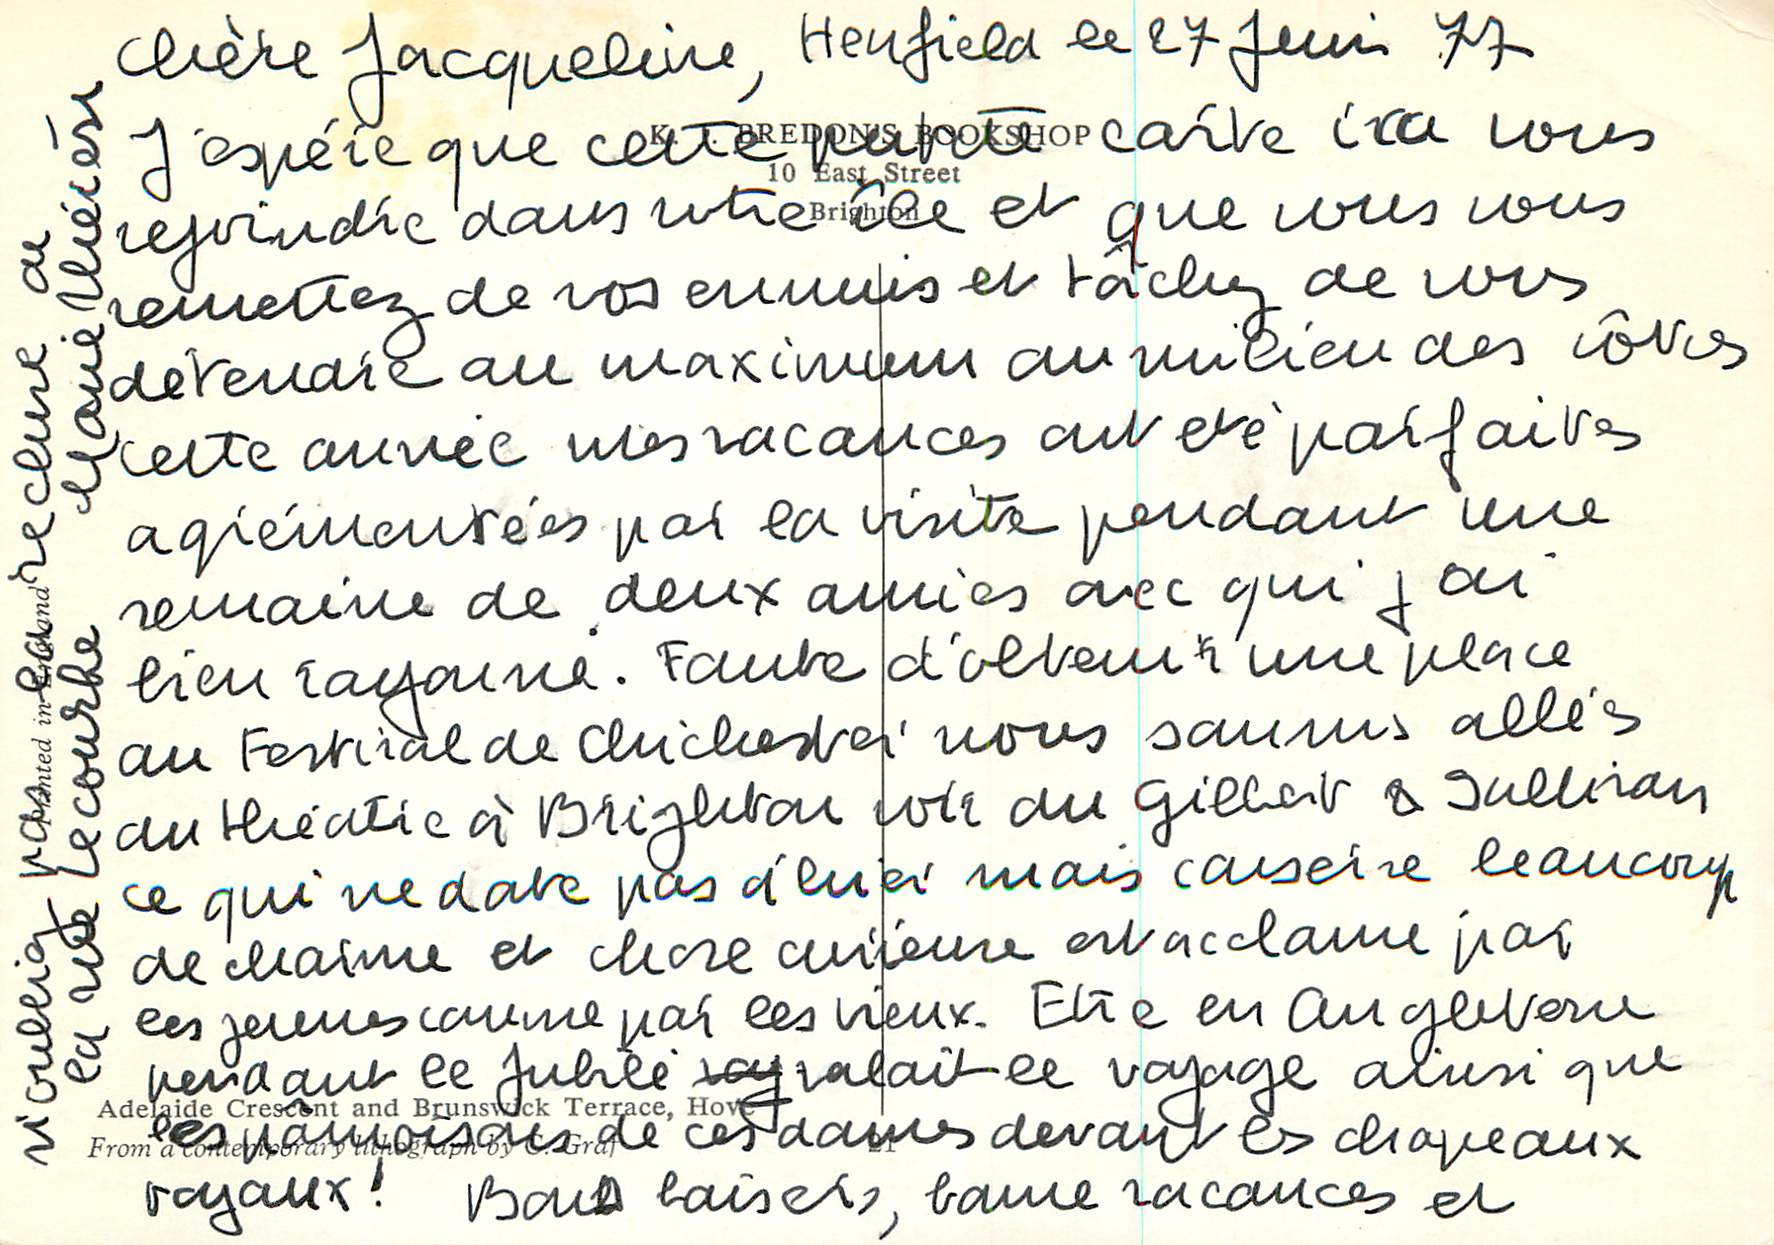 chère Jacqueline, Henfield le 27 Juin 77
K. J. BREDON'S BOOKSHOP
10 East Street
Brighton
J'espère que cette petite carte ira vous
rejoindre dans votre île et que vous vous
remettez de vos ennuis et tâchez de vous
détendre au maximum au milieu des vôtres
cette année mes vacances ont été parfaites
agrémentées par la visite pendant une
semaine de deux amies avec qui j'ai
bien rayonné. Faute d'obtenir une place
au Festival de Chichester nous sommes allés
au théâtre à Brighton voir du Gilbert & Sullivan
ce qui ne date pas d'hier mais conserve beaucoup
de charme et chose curieuse est acclamé par
les jeunes comme par les vieux. Etre en Angleterre
pendant le Jubilé valait le voyage ainsi que
les pâmoisons de ces dames devant les chapeaux
royaux! Bons baisers, bonne vacances et
n'oubliez pas la recluse au
la rue Lecourbe Marie Thérèse
Printed in England
Adelaide Crescent and Brunswick Terrace, Hove
From a contemporary lithograph by C. Graf
21